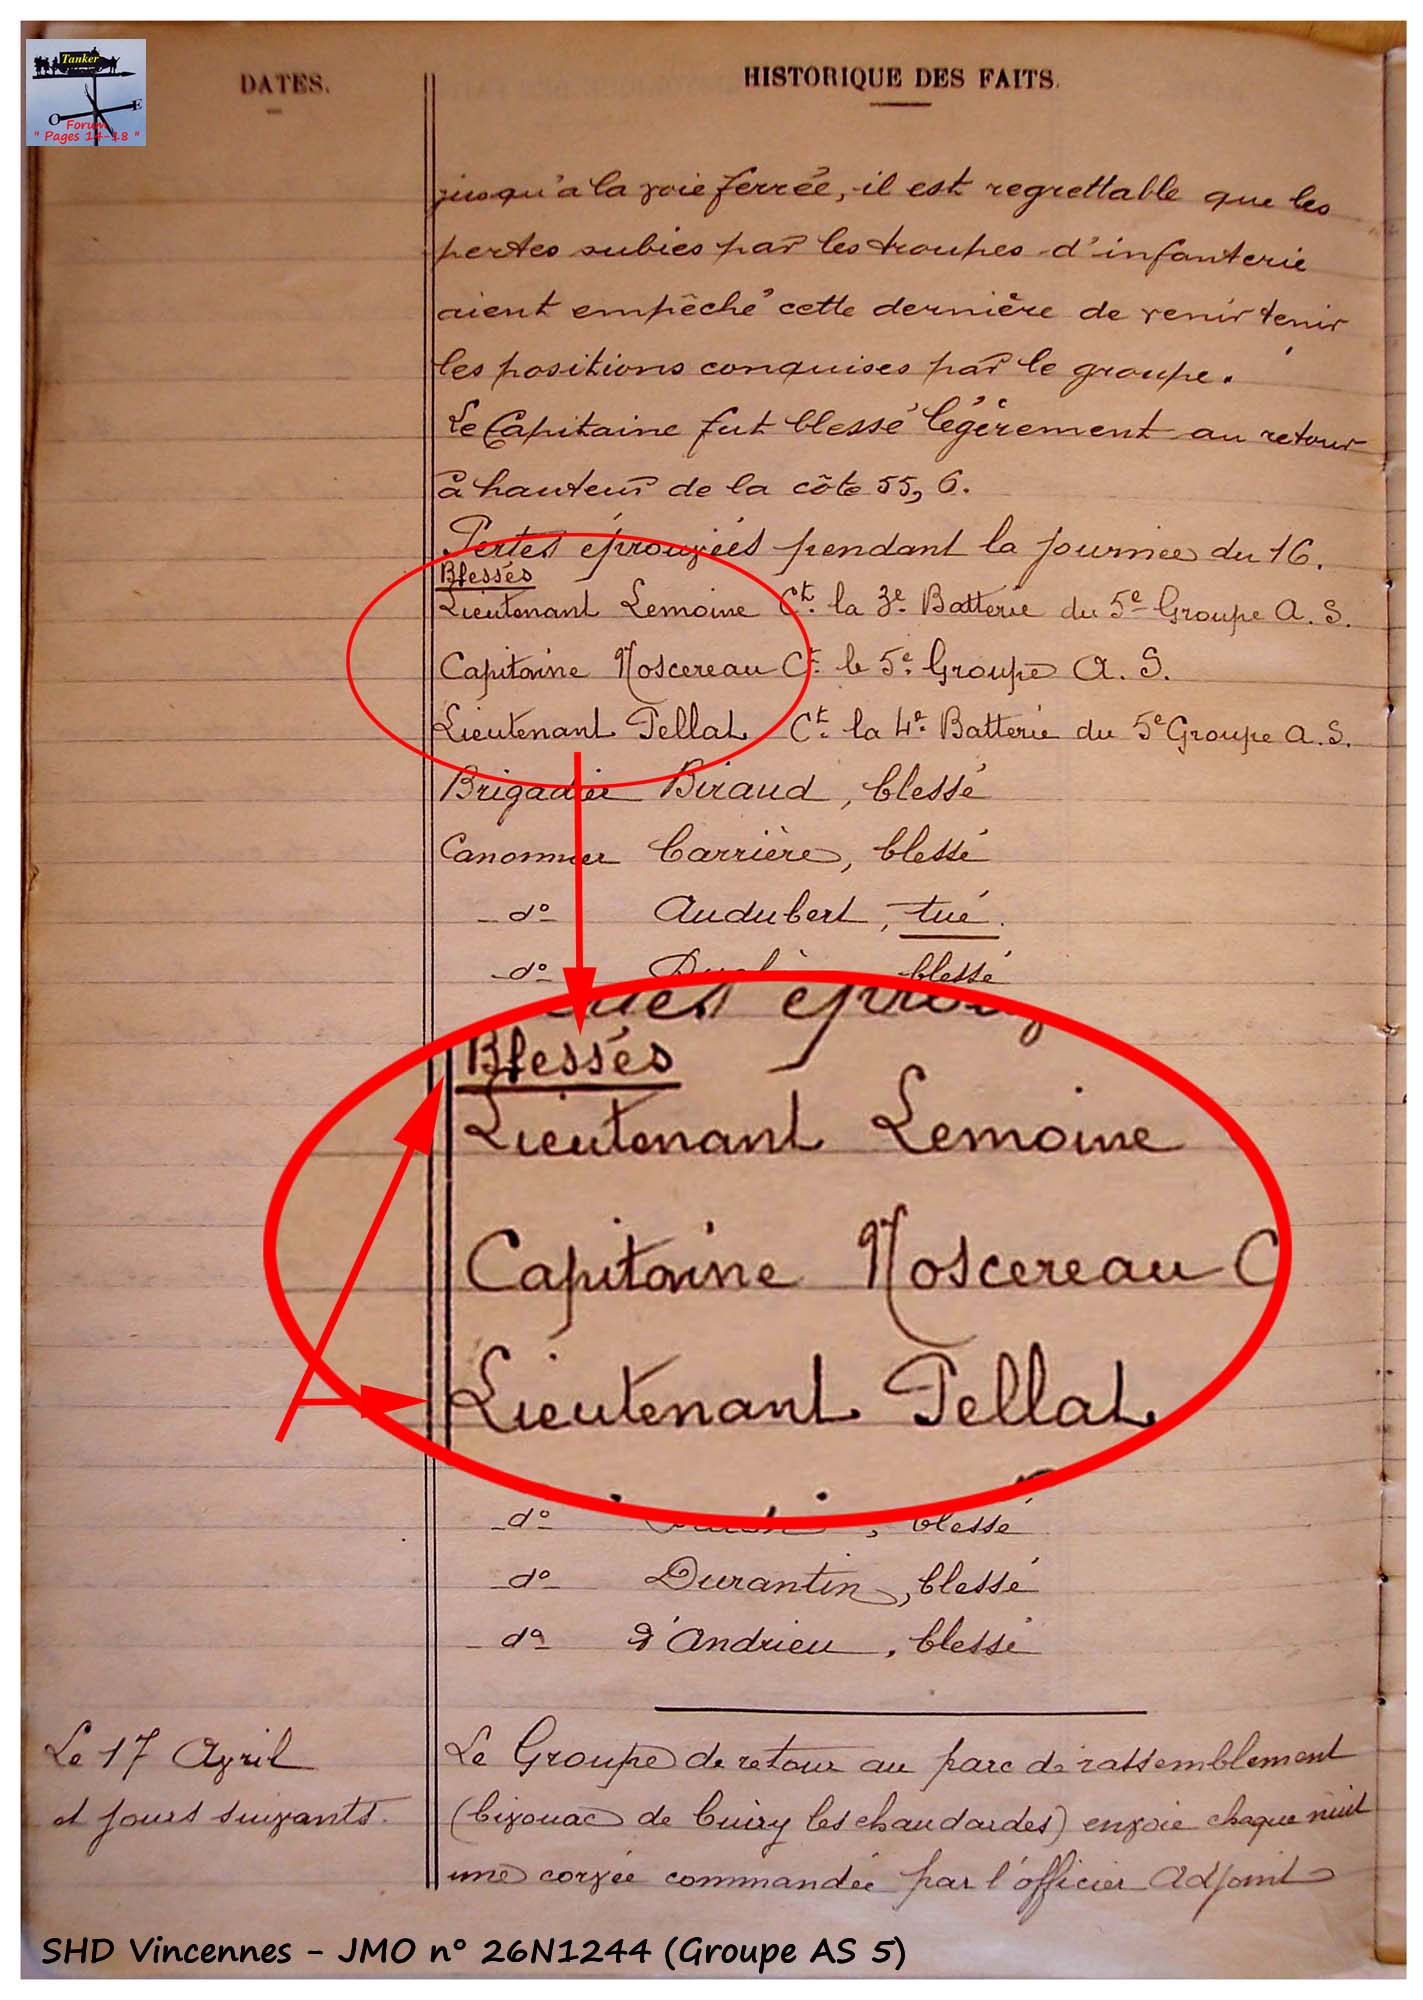 Tanker
O E
Forum
" Pages 14-18 "
DATES.
HISTORIQUE DES FAITS.
jusqu'à la voie ferrée, il est regrettable que les
pertes subies par les troupes d'infanterie
aient empêché cette dernière de venir tenir
les positions conquises par le groupe.
Le Capitaine fut blessé légèrement au retour
à hauteur de la côte 55,6.
Pertes éprouvées pendant la journée du 16.
Blessés
Lieutenant Lemoine Ct. la 3e. Batterie du 5e Groupe A. S.
Capitaine Noscereau Ct. le 5e. Groupe A. S.
Lieutenant Pellat Ct. la 4e. Batterie du 5e Groupe A. S.
Brigadier Biraud, blessé
Canonnier Carrière, blessé
- do Audubert, tué.
- do blessé
Blessés
Lieutenant Lemoine
Capitaine Noscereau C
Lieutenant Pellat
- do , blessé
- do Durantin, blessé
- do d'Andrieu, blessé
Le 17 Avril
et jours suivants.
Le Groupe de retour au parc de rassemblement
(bivouac de Cuiry les chaudardes) envoie chaque nuit
une corvée commandée par l'officier Adjoint
SHD Vincennes - JMO n° 26N1244 (Groupe AS 5)